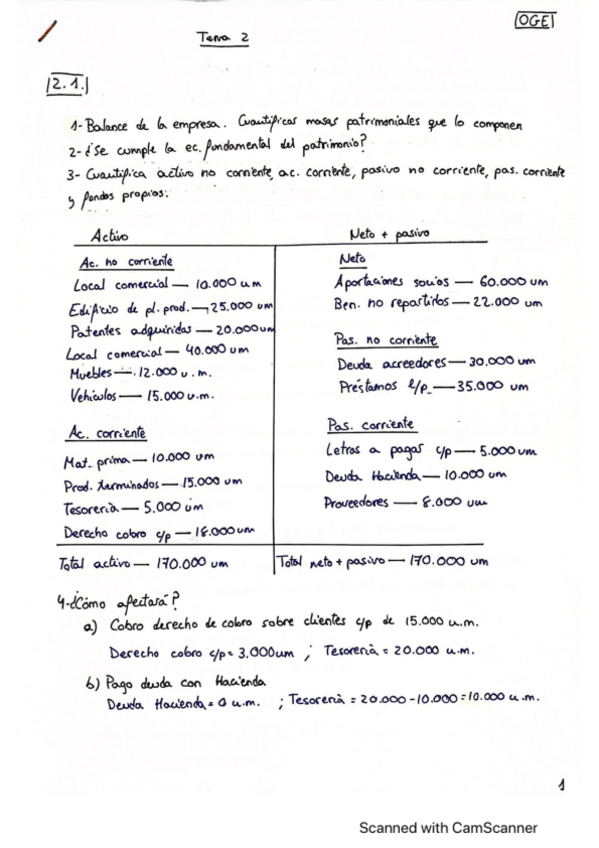 OGE
Tema 2
2.1.
1- Balance de la empresa. Cuantificas masas patrimoniales que lo componen
2- ¿Se cumple la ec. fundamental del patrimonio?
3- Cuantifica activo no corriente, ac. corriente, pasivo no corriente, pas. corriente
y fondos propios.
Activo
Ac. no corriente
Local comercial — 10.000 um
Edificio de pl. prod. — 25.000 um
Patentes adquiridas — 20.000 um
Local comercial — 40.000 um
Muebles — 12.000 u.m.
Vehículos — 15.000 u.m.
Ac. corriente
Mat. prima — 10.000 um
Prod. terminados — 15.000 um
Tesorería — 5.000 um
Derecho cobro c/p — 18.000 um
Total activo — 170.000 um
Neto + pasivo
Neto
Aportaciones socios — 60.000 um
Ben. no repartidos — 22.000 um
Pas. no corriente
Deuda acreedores — 30.000 um
Préstamos l/p — 35.000 um
Pas. corriente
Letras a pagar c/p — 5.000 um
Deuda Hacienda — 10.000 um
Proveedores — 8.000 um
Total neto + pasivo — 170.000 um
4- ¿Cómo afectará?
a) Cobro derecho de cobro sobre clientes c/p de 15.000 u.m.
Derecho cobro c/p = 3.000 um ; Tesorería = 20.000 u.m.
b) Pago deuda con Hacienda
Deuda Hacienda = 0 u.m. ; Tesorería = 20.000 - 10.000 = 10.000 u.m.
1
Scanned with CamScanner